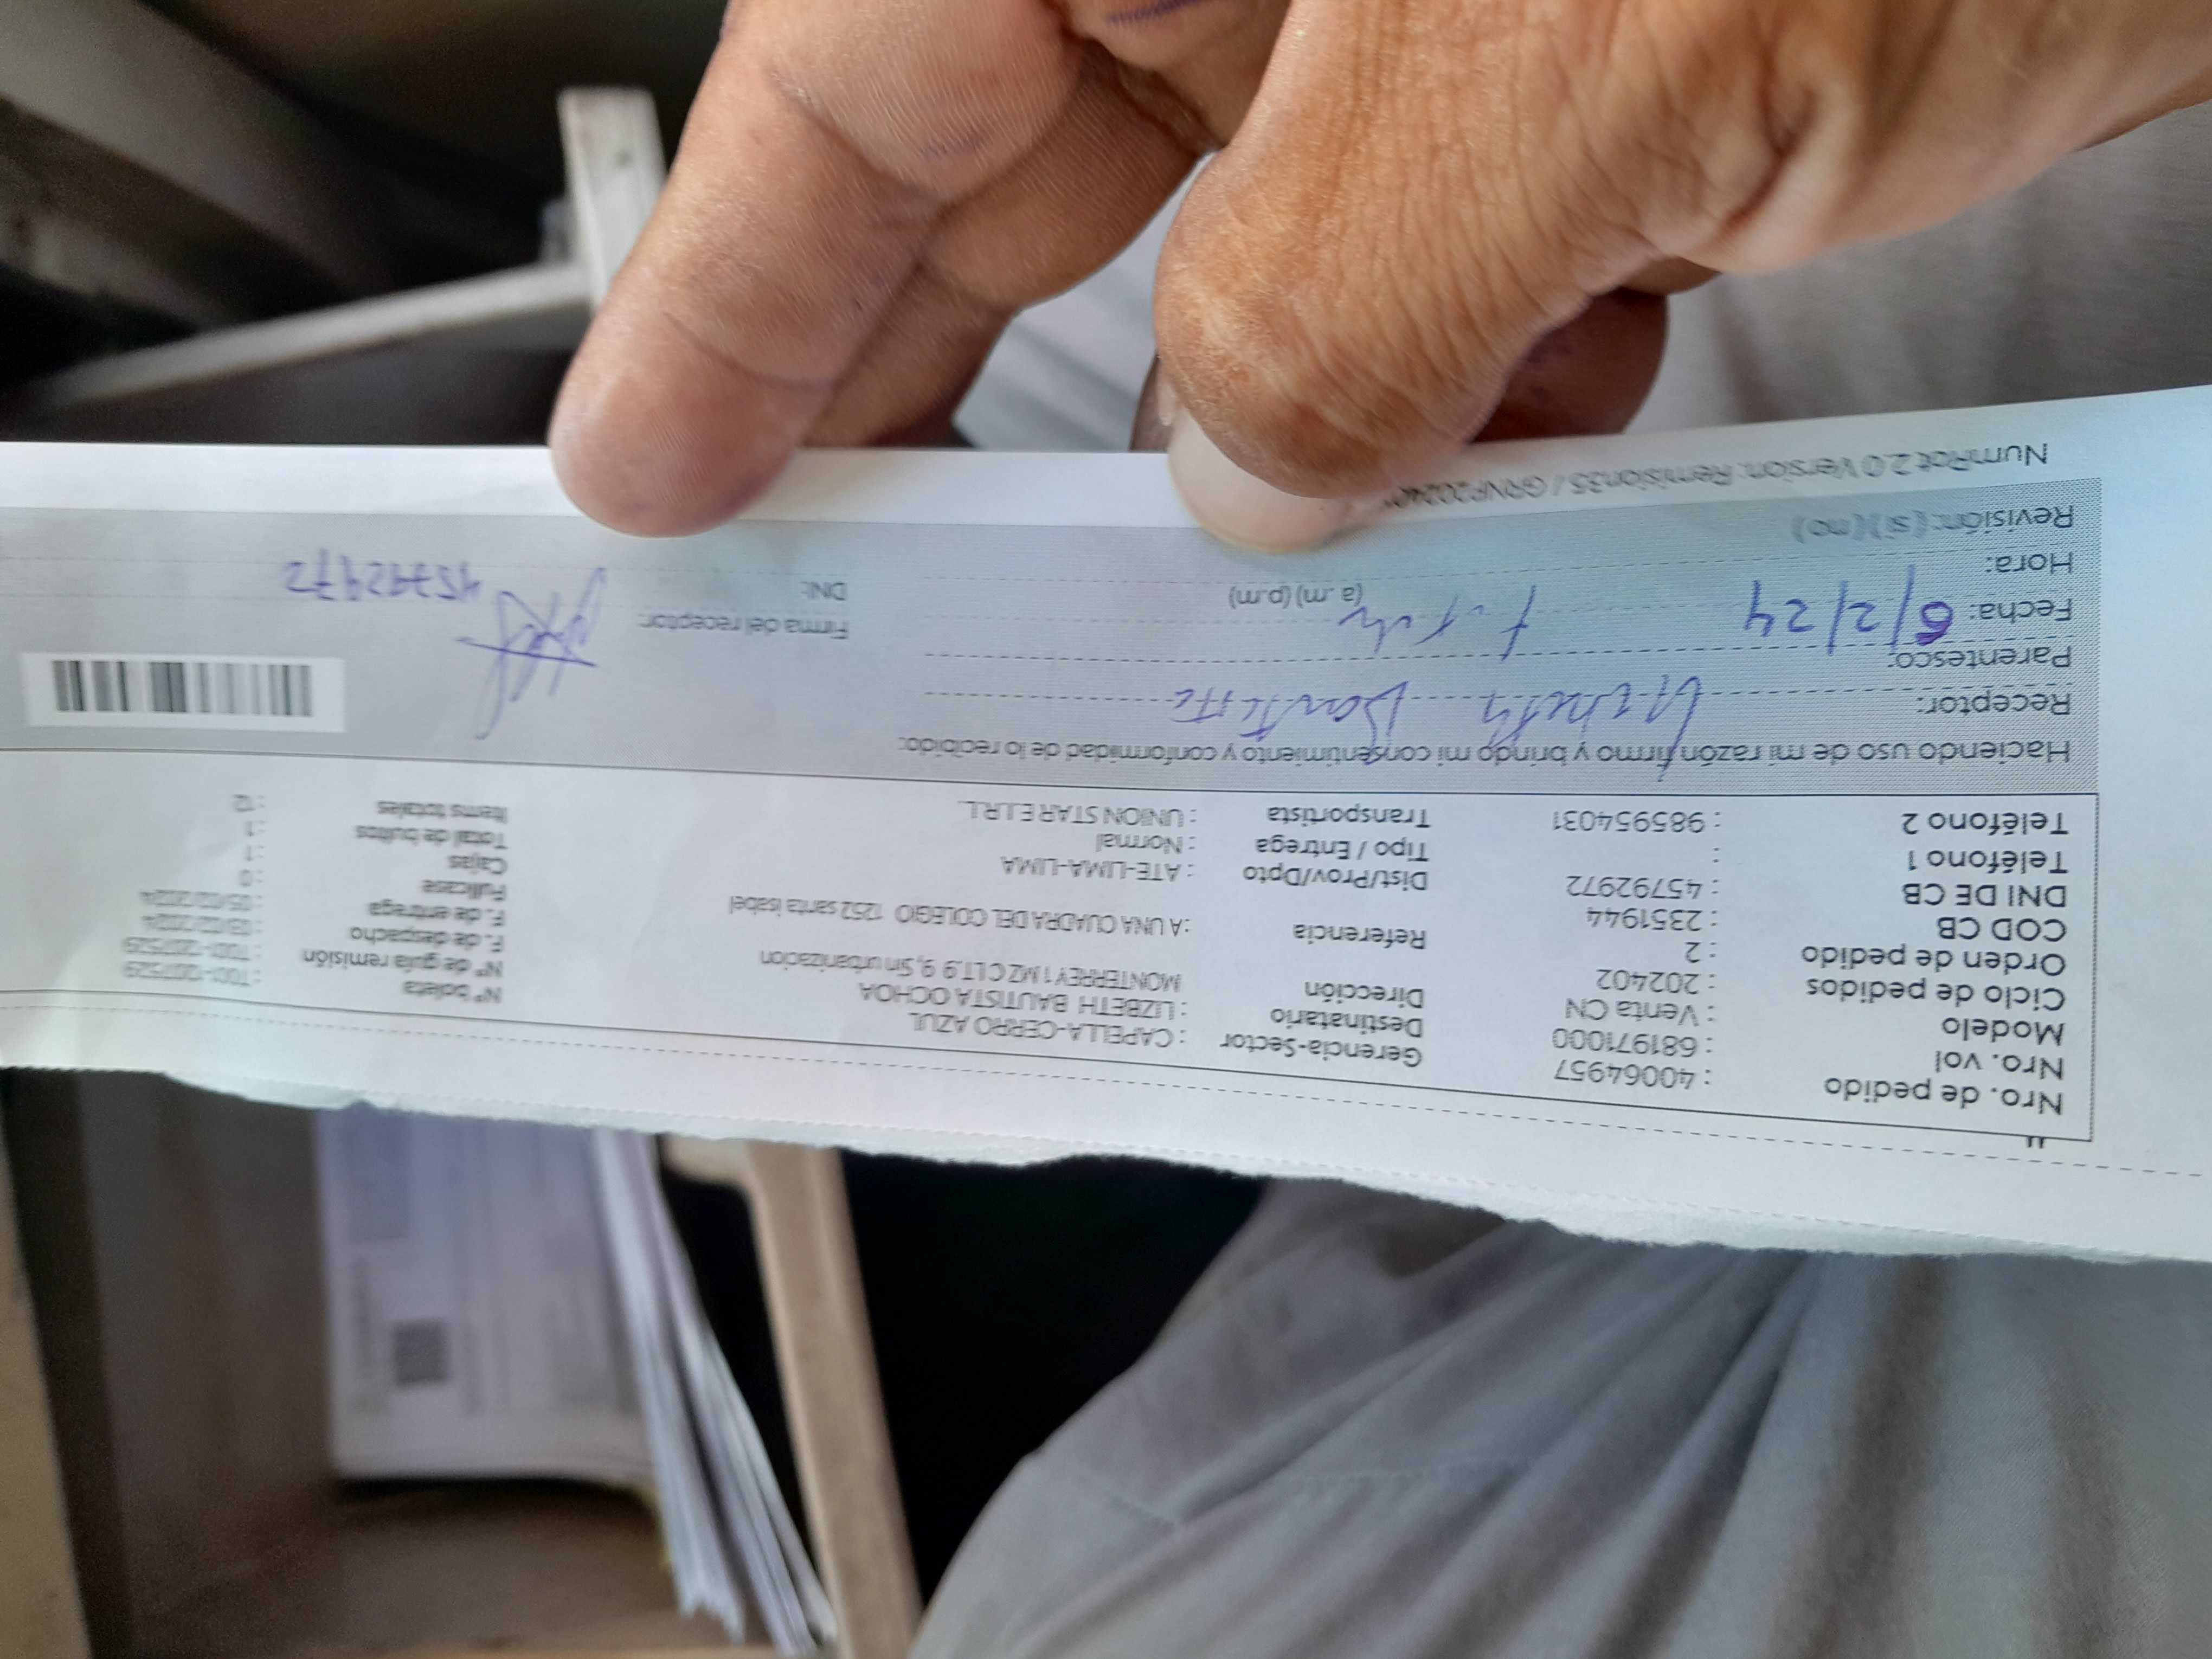 Nro. de pedido : 40064957 Gerencia-Sector : CAPELLA-CERRO AZUL Nº boleta
Nro. vol : 681971000 Destinatario : LIZBETH BAUTISTA OCHOA Nº de guía remisión
Modelo : Venta CN Dirección MONTERREY 1 MZ C LT.9 9, Sin urbanizacion F. de despacho
Ciclo de pedidos : 202402 Referencia : A UNA CUADRA DEL COLEGIO 1252 santa isabel F. de entrega : 05/02/2024
Orden de pedido : 2 Dist/Prov/Dpto : ATE-LIMA-LIMA Fullcase : 0
COD CB : 2351944 Tipo / Entrega : Normal Cajas : 1
DNI DE CB : 45792972 Transportista : UNION STAR E.I.R.L. Total de bultos : 1
Teléfono 1 : Items totales : 12
Teléfono 2 : 985954031
Haciendo uso de mi razón firmo y brindo mi consentimiento y conformidad de lo recibido:
Receptor: Lizbeth Bautista
Parentesco:
Fecha: 6/2/24 Firma del receptor:
Hora: (a.m) (p.m) DNI: 45792972
Revisión: (si) (no)
NumRot 2.0 Version: Remision35 / GRNP20240